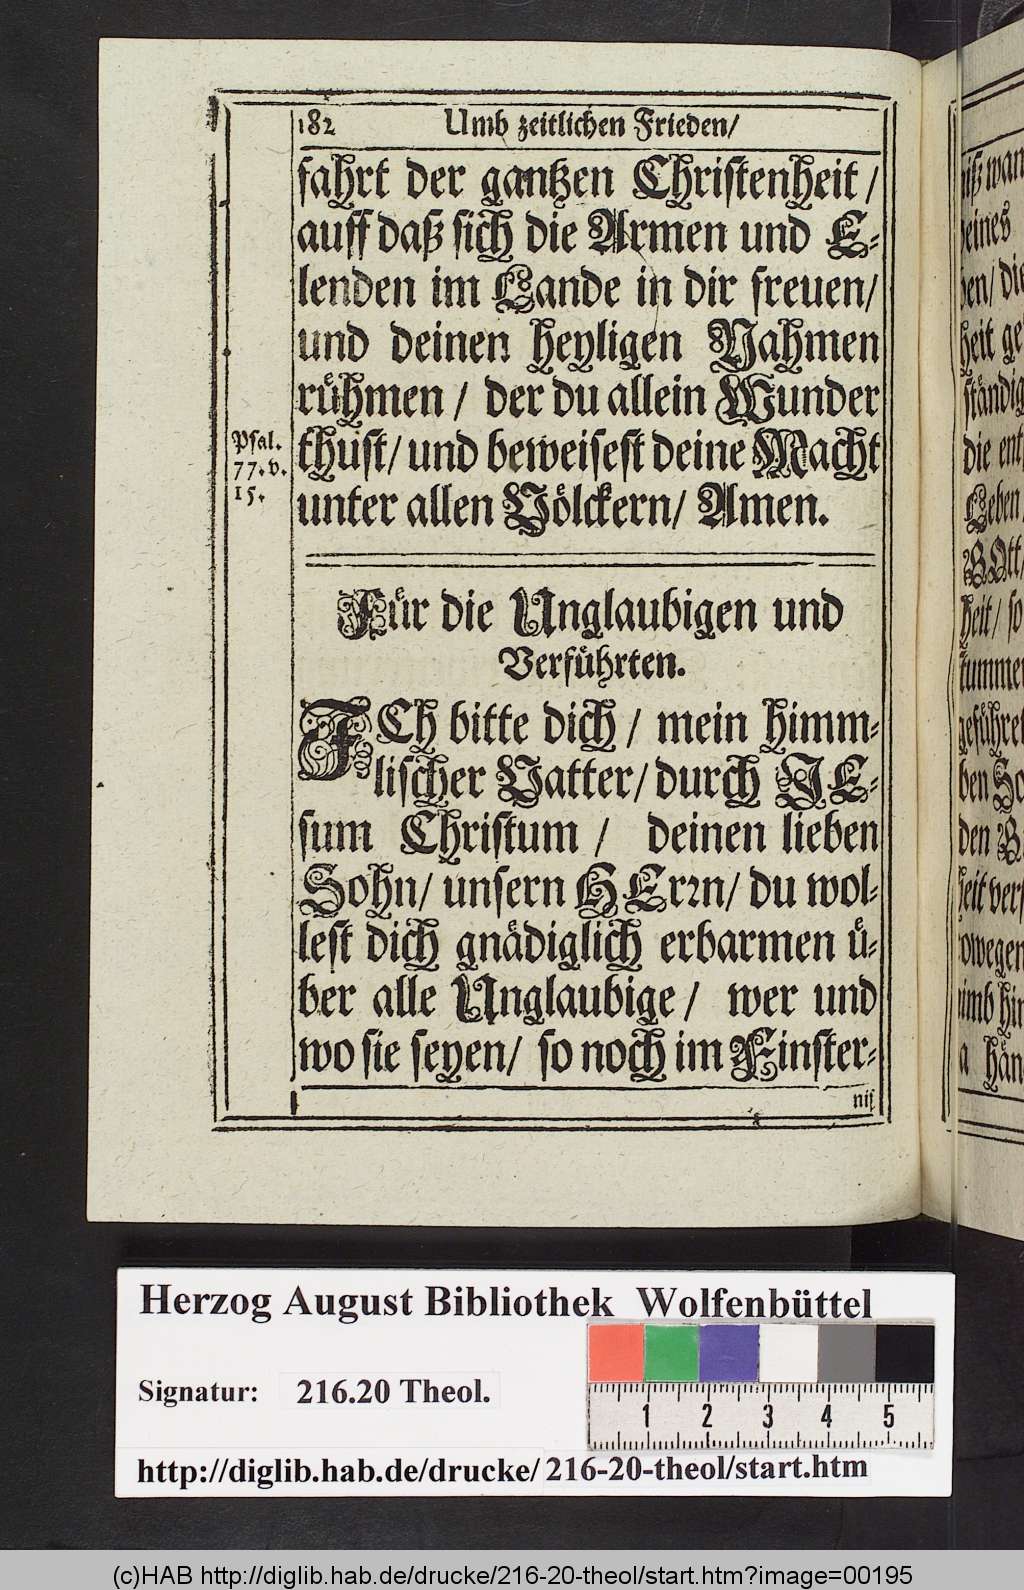 182 Umb zeitlichen Frieden/
fahrt der gantzen Christenheit /
auff daß sich die Armen und E-
lenden im Lande in dir freuen/
und deinen heyligen Nahmen
rühmen / der du allein Wunder
thust/ und beweisest deine Macht
unter allen Völckern/ Amen.
Psal.
77. v.
15.
Für die Unglaubigen und
Verführten.
ICh bitte dich / mein himm-
lischer Vatter/ durch JE-
sum Christum / deinen lieben
Sohn/ unsern HErrn/ du wol-
lest dich gnädiglich erbarmen ü-
ber alle Unglaubige / wer und
wo sie seyen/ so noch im Finster-
niß
wan
heit ge
ständig
die ent
Leben
GOtt/
heit/ so
geführet
ben So
den
heit vers
owegen
nimb hin
Herzog August Bibliothek Wolfenbüttel
Signatur: 216.20 Theol.
1 2 3 4 5
http://diglib.hab.de/drucke/216-20-theol/start.htm
(c)HAB http://diglib.hab.de/drucke/216-20-theol/start.htm?image=00195